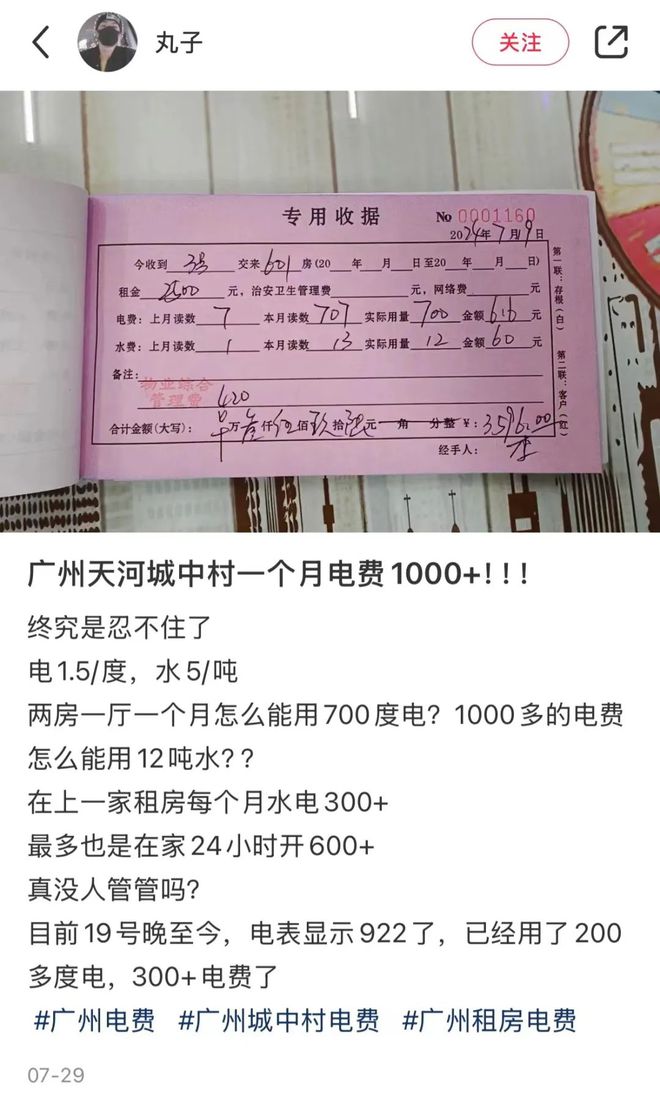 丸子
关注
专用收据
No 0001160
2024年7月19日
今收到 交来601房(20 年 月 日至20 年 月 日)
租金 2500 元，治安卫生管理费 元，网络费 元
电费：上月读数 7 本月读数 707 实际用量 700 金额 616 元
水费：上月读数 1 本月读数 13 实际用量 12 金额 60 元
备注：
物业综合
管理费 420
合计金额(大写)： 万 仟 佰玖拾 元 角 分整 ¥：3596.00
经手人：
第一联：存根(白)
第二联：客户(红)
广州天河城中村一个月电费1000+！！！
终究是忍不住了
电1.5/度，水5/吨
两房一厅一个月怎么能用700度电？1000多的电费
怎么能用12吨水？？
在上一家租房每个月水电300+
最多也是在家24小时开600+
真没人管管吗？
目前19号晚至今，电表显示922了，已经用了200
多度电，300+电费了
#广州电费 #广州城中村电费 #广州租房电费
07-29